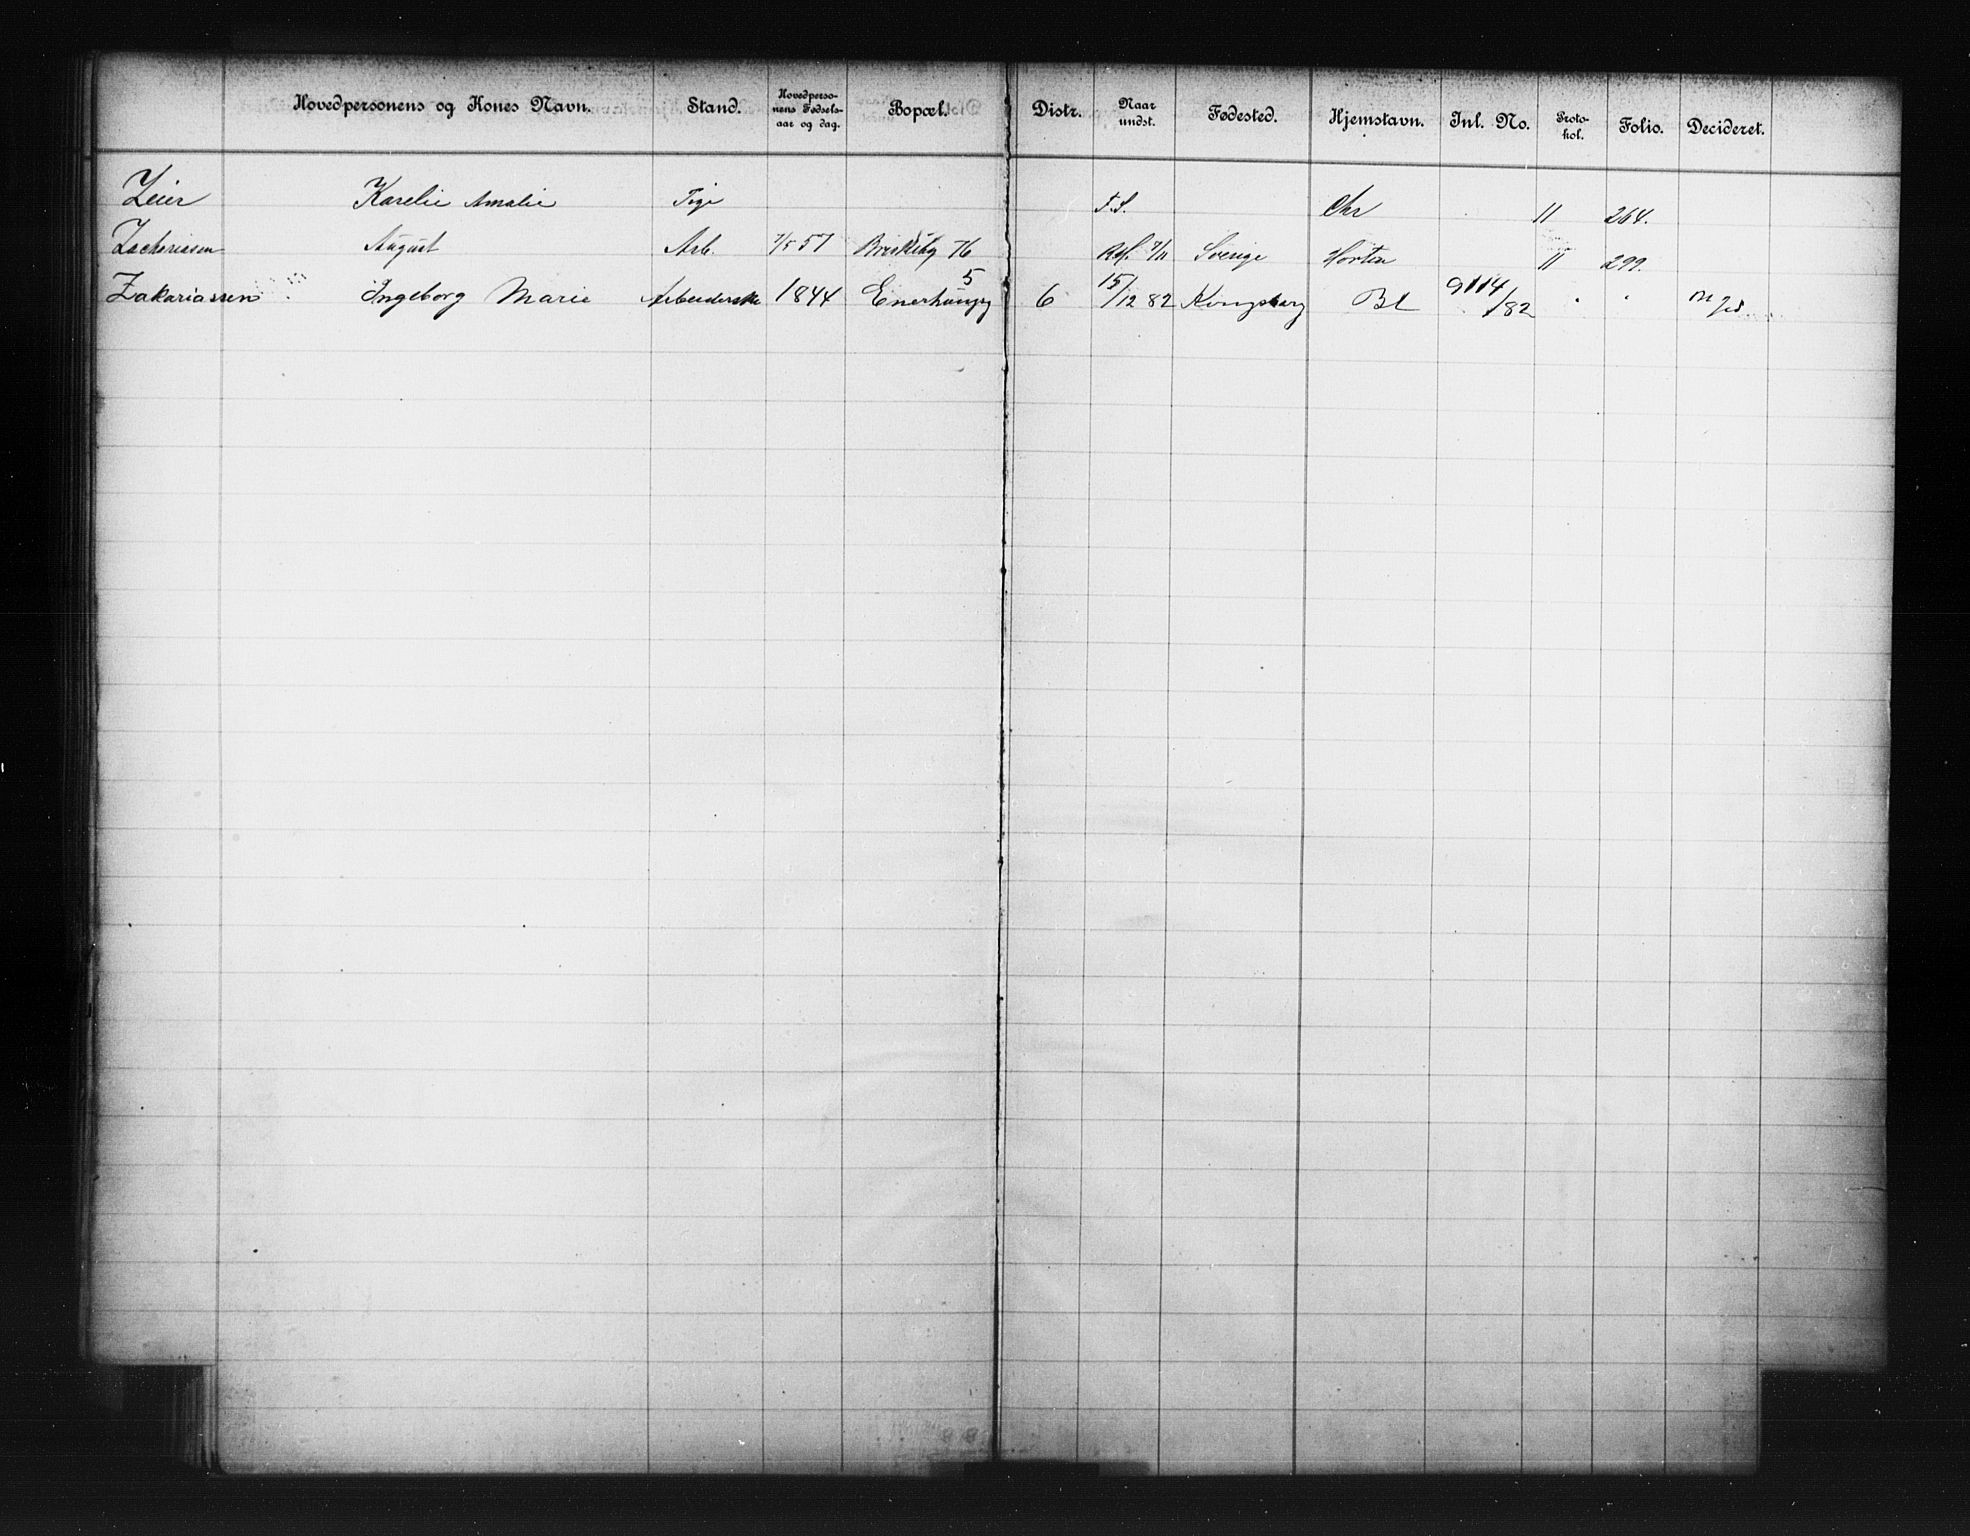 Hovedpersonens og Kones Navn. Stand. Hovedperso-nens Fødsels-aar og dag. Bopæl. Distr. Naar undst. Fødested. Hjemstavn. Inl. No. Proto-kol. Folio. Decideret.
Zeier Karelie Amalie Pige F.S. Chr 11 264.
Zachariasen August Arb. 7/5 57 Briskeby 76 7/11 Sverige Horten 11 299.
Zakariassen Ingeborg Marie Arbeiderske 1844 5 6 15/12 82 Kongsberg Bl 9114/82 " "